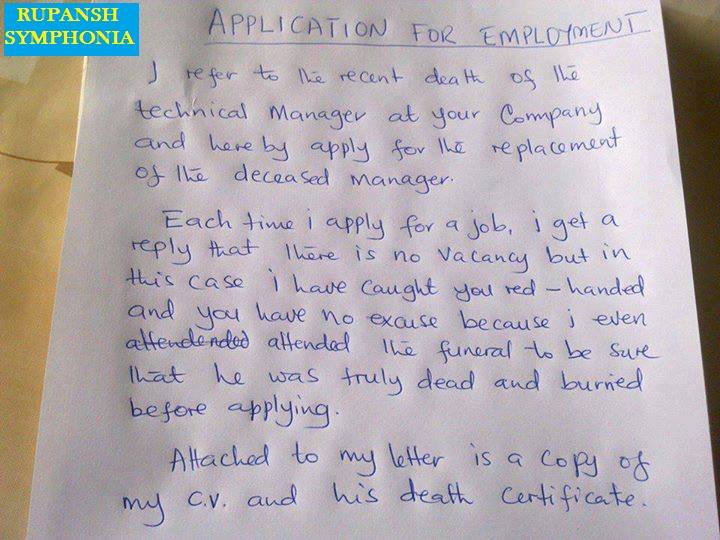 RUPANSH
SYMPHONIA
APPLICATION FOR EMPLOYMENT
I refer to the recent death of the
technical Manager at your Company
and here by apply for the replacement
of the deceased manager.
Each time i apply for a job, i get a
reply that there is no vacancy but in
this case i have caught you red-handed
and you have no excuse because i even
attended the funeral to be sure
that he was truly dead and burried
before applying.
Attached to my letter is a copy of
my C.V. and his death certificate.